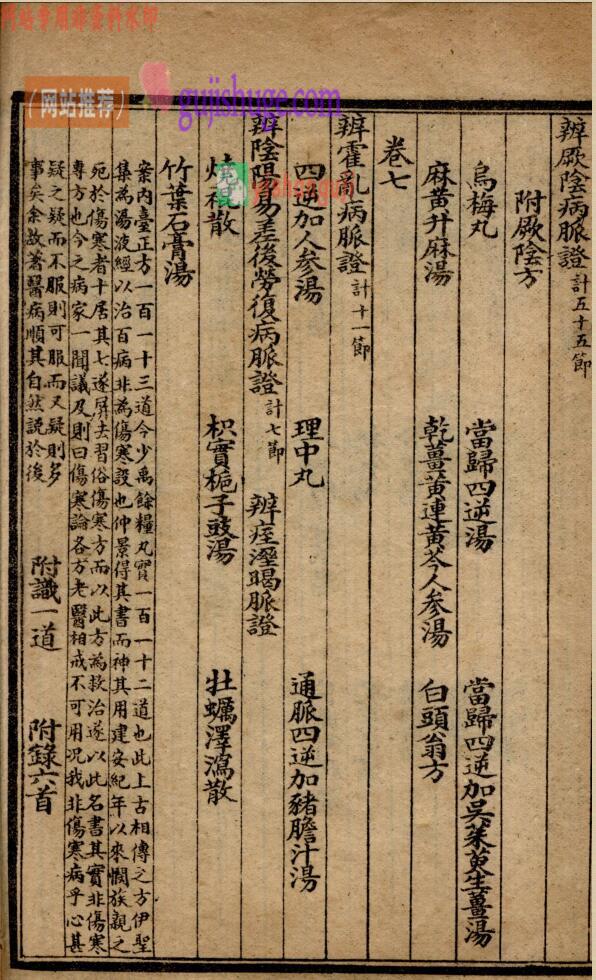 网站专用非资料水印
（网站推荐）
gujishuge.com
辨厥陰病脈證 計五十五節
附厥陰方
烏梅丸 當歸四逆湯 當歸四逆加吳茱萸生薑湯
麻黃升麻湯 乾薑黃連黃芩人參湯 白頭翁方
卷七
辨霍亂病脈證 計十一節
四逆加人參湯 理中丸 通脈四逆加豬膽汁湯
辨陰陽易差後勞復病脈證 計七節 辨痓溼暍脈證
燒裩散 枳實梔子豉湯 牡蠣澤瀉散
竹葉石膏湯
案內臺正方一百一十三道今少禹餘糧丸實一百一十二道也此上古相傳之方伊聖
集為湯液經以治百病非為傷寒設也仲景得其書而神其用建安紀年以來憫族親之
死於傷寒者十居其七遂屏去習俗傷寒方而以此方為救治遂以此名書其實非傷寒
專方也今之病家一聞議及則曰傷寒論各方老醫相戒不可用況我非傷寒病乎心甚
疑之疑而不服則可服而又疑則多
事矣余故著醫病順其自然說於後
附識一道 附錄六首